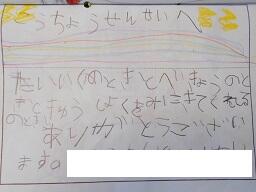 うちょうせんせいへ
たいいくのときとべんきょうのと
きときゅうしょくをみにきてくれる
のとき
ありがとうござい
ます。